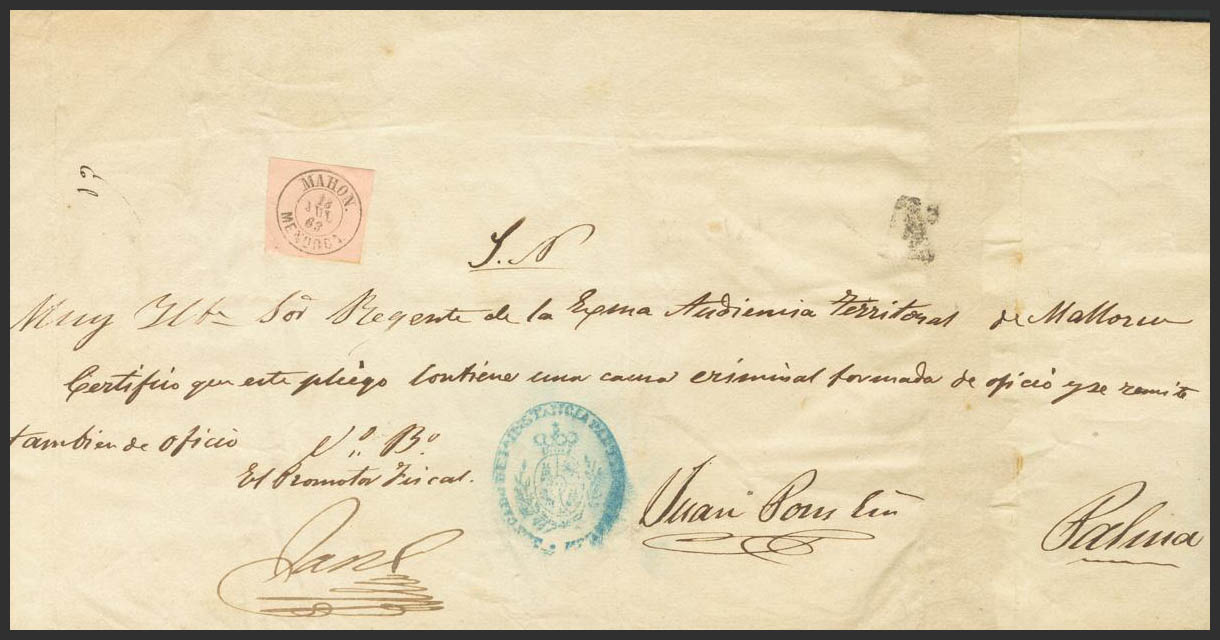 MAHON.
JUL
63
MENORCA
S. N
Muy Sor Regente de la Exma Audiencia Territorial de Mallorca
Certifico que este pliego contiene una causa criminal formada de oficio y se remite
tambien de oficio Vº Bº
El Promotor Fiscal.
Juan Pons
Palma